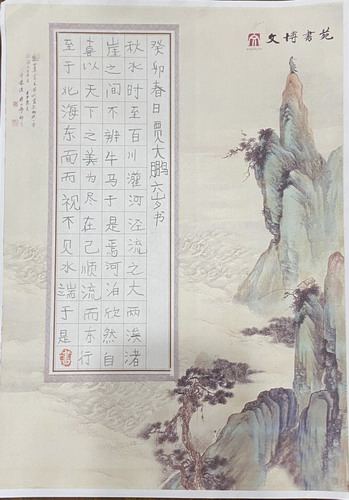 文博書苑
癸卯春日贾大鹏六岁书
秋水时至百川灌河泾流之大两涘渚
崖之间不辨牛马于是焉河泊欣然自
喜以天下之美为尽在己顺流而东行
至于北海东面而视不见水端于是
書